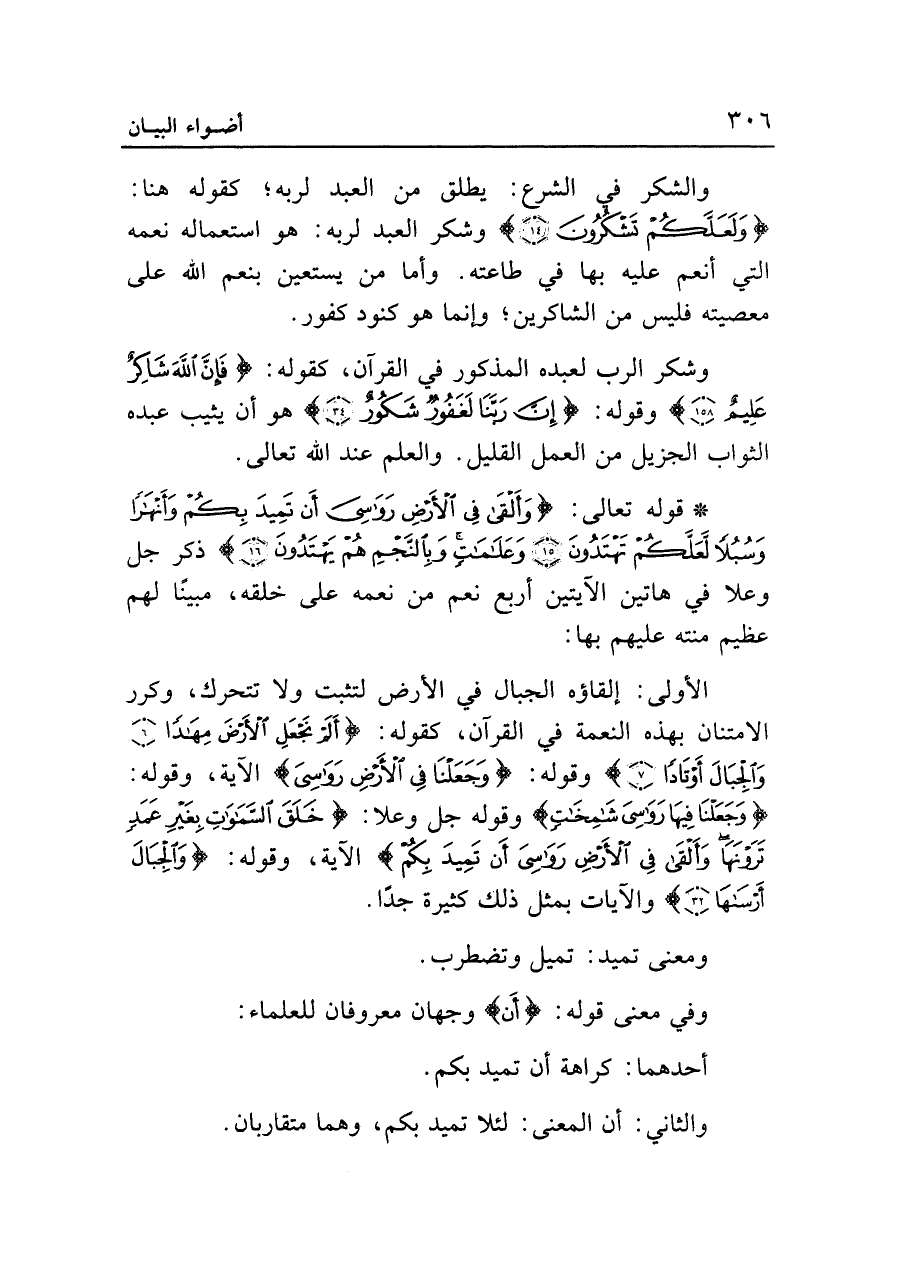 ٣٠٦
أضـواء البيـان
والشكر في الشرع: يطلق من العبد لربه؛ كقوله هنا:
﴿ وَلَعَلَّكُمْ تَشْكُرُونَ ۝١٤ ﴾ وشكر العبد لربه: هو استعماله نعمه
التي أنعم عليه بها في طاعته. وأما من يستعين بنعم الله على
معصيته فليس من الشاكرين؛ وإنما هو كنود كفور.
وشكر الرب لعبده المذكور في القرآن، كقوله: ﴿ فَإِنَّ ٱللَّهَ شَاكِرٌ
عَلِيمٌ ۝١٥٨ ﴾ وقوله: ﴿ إِنَّ رَبَّنَا لَغَفُورٌ شَكُورٌ ۝٣٤ ﴾ هو أن يثيب عبده
الثواب الجزيل من العمل القليل. والعلم عند الله تعالى.
* قوله تعالى: ﴿وَأَلْقَىٰ فِي ٱلْأَرْضِ رَوَٰسِيَ أَن تَمِيدَ بِكُمْ وَأَنْهَٰرًا
وَسُبُلًا لَّعَلَّكُمْ تَهْتَدُونَ ۝١٥ وَعَلَٰمَٰتٍۚ وَبِٱلنَّجْمِ هُمْ يَهْتَدُونَ ۝١٦ ﴾ ذكر جل
وعلا في هاتين الآيتين أربع نعم من نعمه على خلقه، مبينًا لهم
عظيم منته عليهم بها:
الأولى: إلقاؤه الجبال في الأرض لتثبت ولا تتحرك، وكرر
الامتنان بهذه النعمة في القرآن، كقوله: ﴿ أَلَمْ نَجْعَلِ ٱلْأَرْضَ مِهَٰدًا ۝٦
وَٱلْجِبَالَ أَوْتَادًا ۝٧ ﴾ وقوله: ﴿ وَجَعَلْنَا فِي ٱلْأَرْضِ رَوَٰسِيَ﴾ الآية، وقوله:
﴿ وَجَعَلْنَا فِيهَا رَوَٰسِيَ شَٰمِخَٰتٍ﴾ وقوله جل وعلا: ﴿ خَلَقَ ٱلسَّمَٰوَٰتِ بِغَيْرِ عَمَدٍ
تَرَوْنَهَاۖ وَأَلْقَىٰ فِي ٱلْأَرْضِ رَوَٰسِيَ أَن تَمِيدَ بِكُمْ ﴾ الآية، وقوله: ﴿ وَٱلْجِبَالَ
أَرْسَىٰهَا ۝٣٢﴾ والآيات بمثل ذلك كثيرة جدًا.
ومعنى تميد: تميل وتضطرب.
وفي معنى قوله: ﴿أَن﴾ وجهان معروفان للعلماء:
أحدهما: كراهة أن تميد بكم.
والثاني: أن المعنى: لئلا تميد بكم، وهما متقاربان.